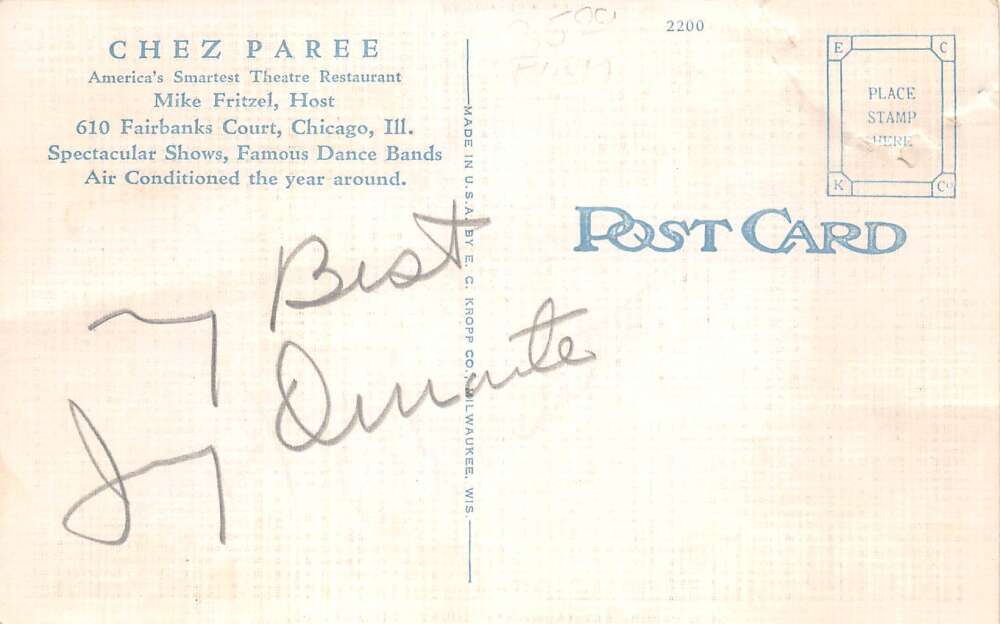 CHEZ PAREE
America's Smartest Theatre Restaurant
Mike Fritzel, Host
610 Fairbanks Court, Chicago, Ill.
Spectacular Shows, Famous Dance Bands
Air Conditioned the year around.
My Best
Jimmy Durante
MADE IN U.S.A. BY E. C. KROPP CO., MILWAUKEE, WIS.
2200
E C
PLACE
STAMP
HERE
K Co
POST CARD